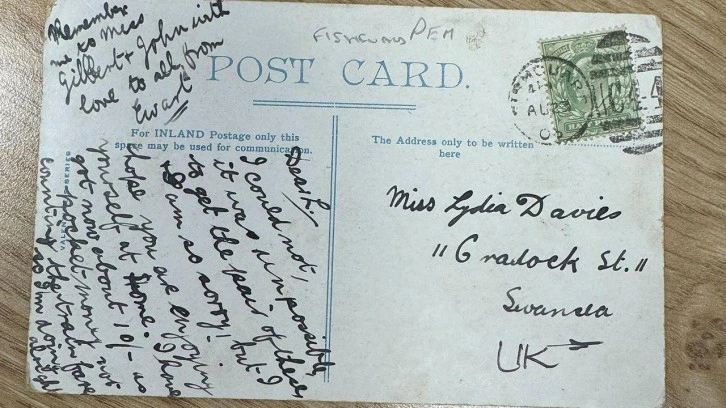 Remember
me to Miss
Gilbert & John with
love to all from
Ewart
FISHGUARD PEM
POST CARD.
For INLAND Postage only this
space may be used for communication.
The Address only to be written
here
Dear L.
I could not,
it was impossible
to get the pair of these
I am so sorry! but I
hope you are enjoying
yourself at Home. I have
got now about 10/- as
pocket money not
counting the train fare
so I'm doing
alright
VALENTINES SERIES
Miss Lydia Davies
11 Cradock St.
Swansea
UK